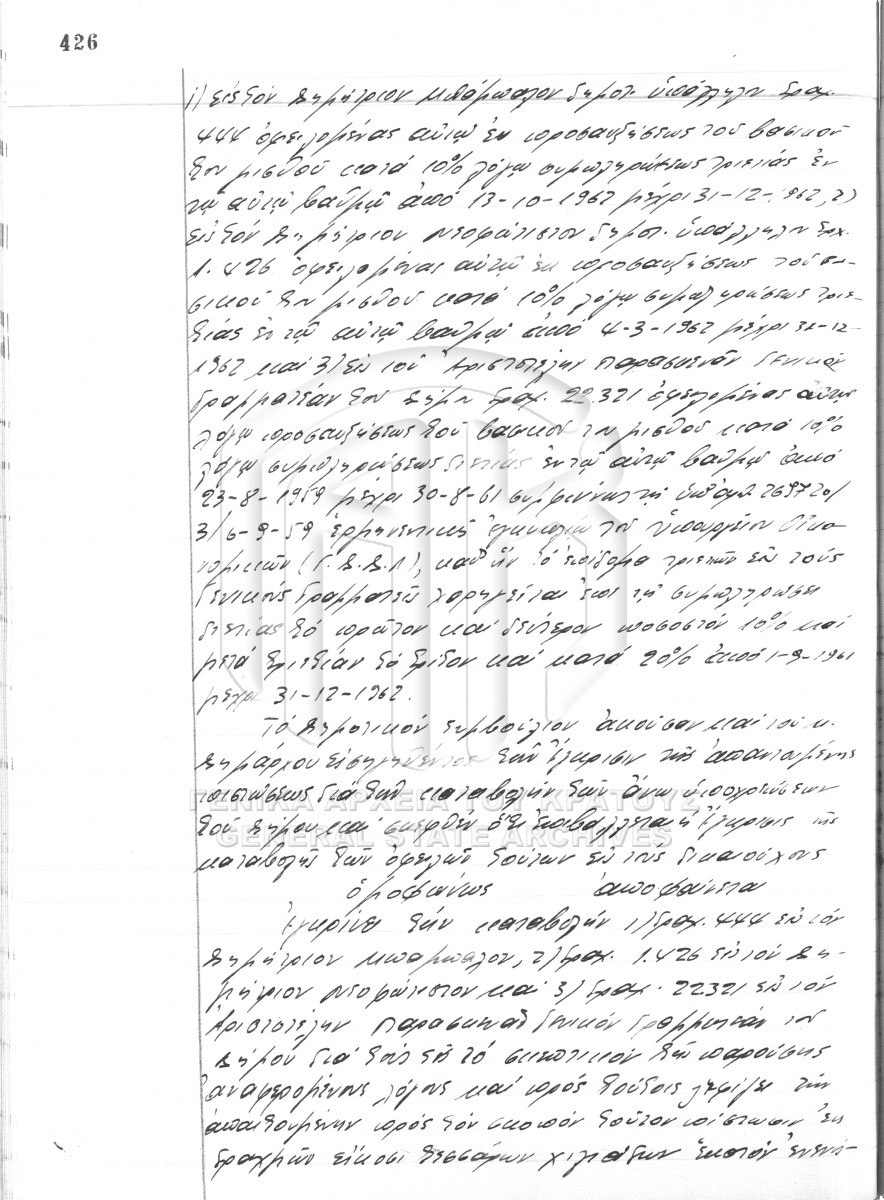 426
1) εἰς τόν Δημήτριον Μπάμπαλον δημοτ. ὑπάλληλον δραχ.
444 ὀφειλομένας αὐτῷ ἐκ προσαυξήσεως τοῦ βασικοῦ
του μισθοῦ κατά 10% λόγῳ συμπληρώσεως τριετίας ἐν
τῷ αὐτῷ βαθμῷ ἀπό 13-10-1962 μέχρι 31-12-1962, 2)
εἰς τόν Δημήτριον Νεοφώτιστον δημοτ. ὑπάλληλον δρχ.
1.426 ὀφειλομένας αὐτῷ ἐκ προσαυξήσεως τοῦ βα-
σικοῦ του μισθοῦ κατά 10% λόγῳ συμπληρώσεως τριε-
τίας ἐν τῷ αὐτῷ βαθμῷ ἀπό 4-3-1962 μέχρι 31-12-
1962 καί 3) εἰς τόν Ἀριστοτέλην Παρασκευᾶν Γενικόν
Γραμματέαν του Δήμου δραχ. 22.321 ὀφειλομένας αὐτῷ
λόγῳ προσαυξήσεως τοῦ βασικοῦ του μισθοῦ κατά 10%
λόγῳ συμπληρώσεως διετίας ἐν τῷ αὐτῷ βαθμῷ ἀπό
23-8-1959 μέχρι 30-8-61 συμφώνως τῇ ὑπ' ἀριθ. 269720/
3/6-9-59 ἑρμηνευτικῇ ἐγκυκλίῳ τοῦ Ὑπουργείου Οἰκο-
νομικῶν (Γ.Δ.Δ.Λ), καθ' ἥν τό ἐπίδομα τριετιῶν εἰς τούς
Γενικούς Γραμματεῖς χορηγεῖται ἐπί τῇ συμπληρώσει
διετίας τό πρῶτον καί δεύτερον ποσοστόν 10% καί
μετά τριετίαν τό τρίτον καί κατά 20% ἀπό 1-9-1961
μέχρι 31-12-1962.
Τό Δημοτικόν Συμβούλιον ἀκοῦσαν καί τοῦ κ.
Δημάρχου εἰσηγηθέντος τήν ἔγκρισιν τῆς ἀπαιτουμένης
πιστώσεως διά τήν καταβολήν τῶν ἄνω ὑποχρεώσεων
τοῦ Δήμου καί σκεφθέν ὅτι ἐπιβάλλεται ἡ ἔγκρισις τῆς
καταβολῆς τῶν ὀφειλῶν τούτων εἰς τούς δικαιούχους
ὁμοφώνως ἀποφαίνεται
Ἐγκρίνει τήν καταβολήν 1) δραχ. 444 εἰς τόν
Δημήτριον Μπάμπαλον, 2) δραχ. 1.426 εἰς τόν Δη-
μήτριον Νεοφώτιστον καί 3) δραχ. 22321 εἰς τόν
Ἀριστοτέλην Παρασκευᾶν Γενικόν Γραμματέαν του
Δήμου διά τούς εἰς τό σκεπτικόν τῆς παρούσης
ἀναφερομένους λόγους καί πρός τούτοις ψηφίζει τήν
ἀπαιτουμένην πρός τόν σκοπόν τοῦτον πίστωσιν ἐκ
δραχμῶν εἴκοσι τεσσάρων χιλιάδων ἑκατόν ἐνενή-
ΓΕΝΙΚΑ ΑΡΧΕΙΑ ΤΟΥ ΚΡΑΤΟΥΣ
GENERAL STATE ARCHIVES